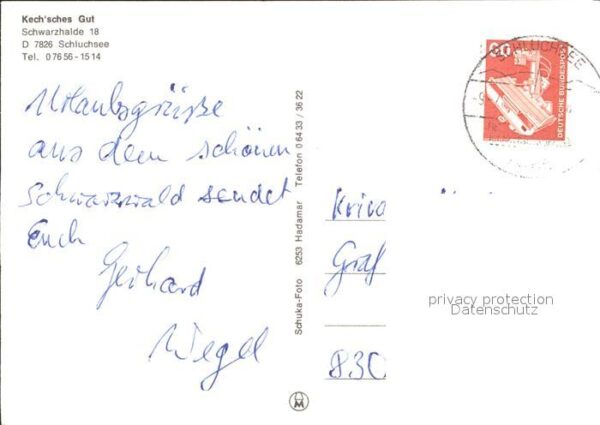 Kech'sches Gut
Schwarzhalde 18
D 7826 Schluchsee
Tel. 0 76 56 - 15 14
Urlaubsgrüße
aus dem schönen
Schwarzwald sendet
Euch
Gerhard
Wegel
Schuka-Foto 6253 Hadamar Telefon 0 64 33 / 36 22
60
DEUTSCHE BUNDESPOST
SCHLUCHSEE
Graf
830
privacy protection
Datenschutz
M